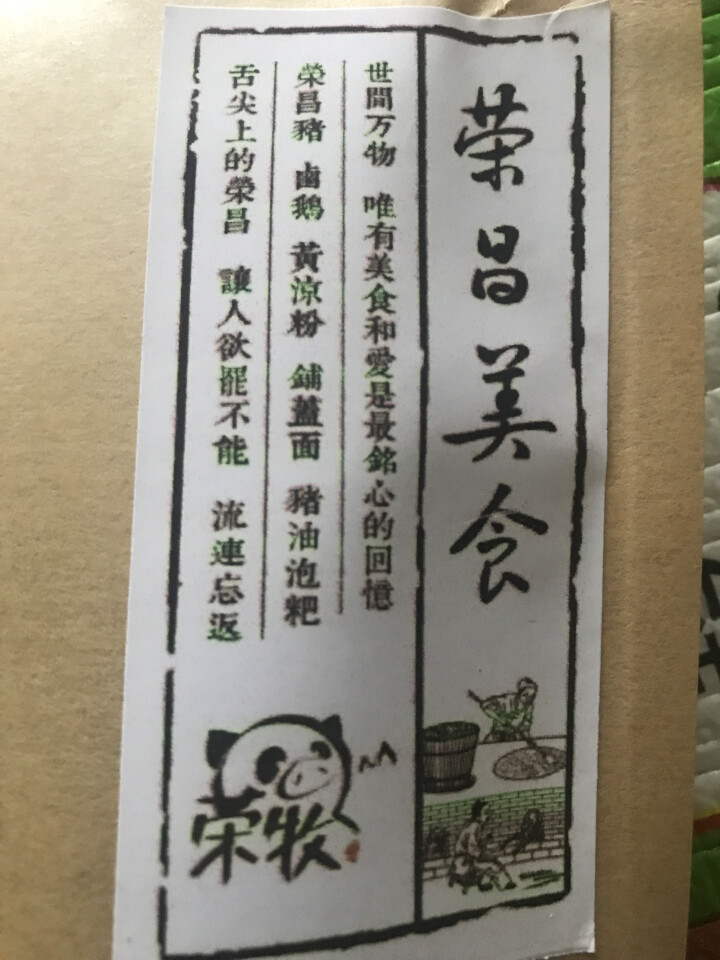 荣昌美食
世間万物 唯有美食和愛是最銘心的回憶
榮昌豬 鹵鹅 黃涼粉 鋪蓋面 豬油泡粑
舌尖上的榮昌 讓人欲罷不能 流連忘返
荣牧